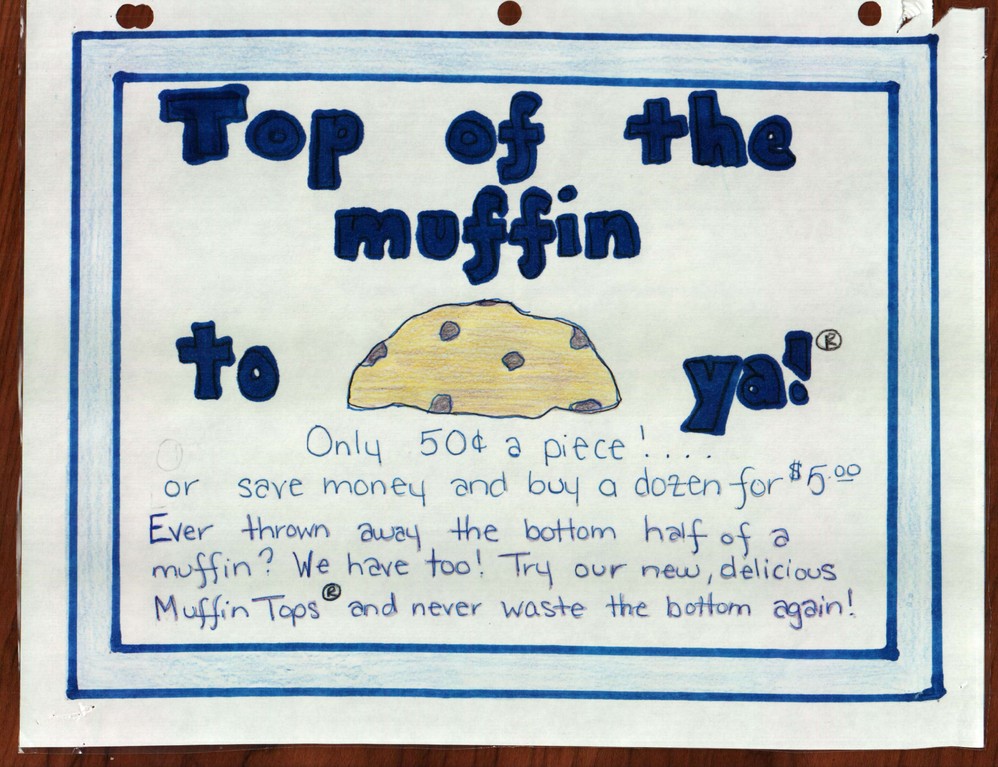 Top of the
muffin
to ya!®
Only 50¢ a piece!....
or save money and buy a dozen for $5.00
Ever thrown away the bottom half of a
muffin? We have too! Try our new, delicious
Muffin Tops® and never waste the bottom again!